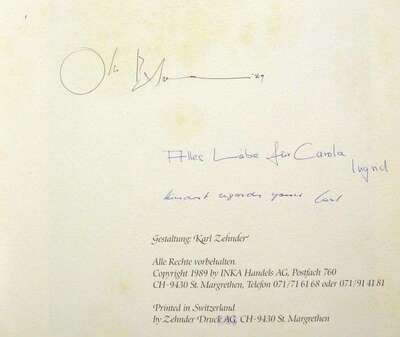 '89
Alles Liebe für Carola
Ingrid
kindest regards yours
Gestaltung: Karl Zehnder
Alle Rechte vorbehalten.
Copyright 1989 by INKA Handels AG, Postfach 760
CH-9430 St. Margrethen, Telefon 071/71 61 68 oder 071/91 41 81
Printed in Switzerland
by Zehnder Druck AG, CH-9430 St. Margrethen